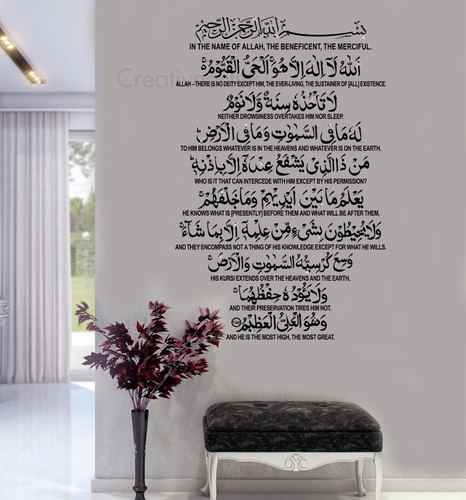 بِسْمِ اللهِ الرَّحْمٰنِ الرَّحِيْمِ
IN THE NAME OF ALLAH, THE BENEFICENT, THE MERCIFUL.
اَللهُ لَآ اِلٰهَ اِلَّا هُوَ ۚ اَلْحَيُّ الْقَيُّوْمُ ۚ
Creative
ALLAH – THERE IS NO DEITY EXCEPT HIM, THE EVER-LIVING, THE SUSTAINER OF [ALL] EXISTENCE.
لَا تَأْخُذُهٗ سِنَةٌ وَّلَا نَوْمٌ
NEITHER DROWSINESS OVERTAKES HIM NOR SLEEP.
لَهٗ مَا فِي السَّمٰوٰتِ وَمَا فِي الْاَرْضِ
TO HIM BELONGS WHATEVER IS IN THE HEAVENS AND WHATEVER IS ON THE EARTH.
مَنْ ذَا الَّذِيْ يَشْفَعُ عِنْدَهٗٓ اِلَّا بِاِذْنِهٖ ۚ
WHO IS IT THAT CAN INTERCEDE WITH HIM EXCEPT BY HIS PERMISSION?
يَعْلَمُ مَا بَيْنَ اَيْدِيْهِمْ وَمَا خَلْفَهُمْ ۚ
HE KNOWS WHAT IS [PRESENTLY] BEFORE THEM AND WHAT WILL BE AFTER THEM,
وَلَا يُحِيْطُوْنَ بِشَيْءٍ مِّنْ عِلْمِهٖٓ اِلَّا بِمَا شَآءَ ۚ
AND THEY ENCOMPASS NOT A THING OF HIS KNOWLEDGE EXCEPT FOR WHAT HE WILLS.
وَسِعَ كُرْسِيُّهُ السَّمٰوٰتِ وَالْاَرْضَ ۚ
HIS KURSI EXTENDS OVER THE HEAVENS AND THE EARTH,
وَلَا يَـُٔوْدُهٗ حِفْظُهُمَا ۚ
AND THEIR PRESERVATION TIRES HIM NOT.
وَهُوَ الْعَلِيُّ الْعَظِيْمُ
AND HE IS THE MOST HIGH, THE MOST GREAT.